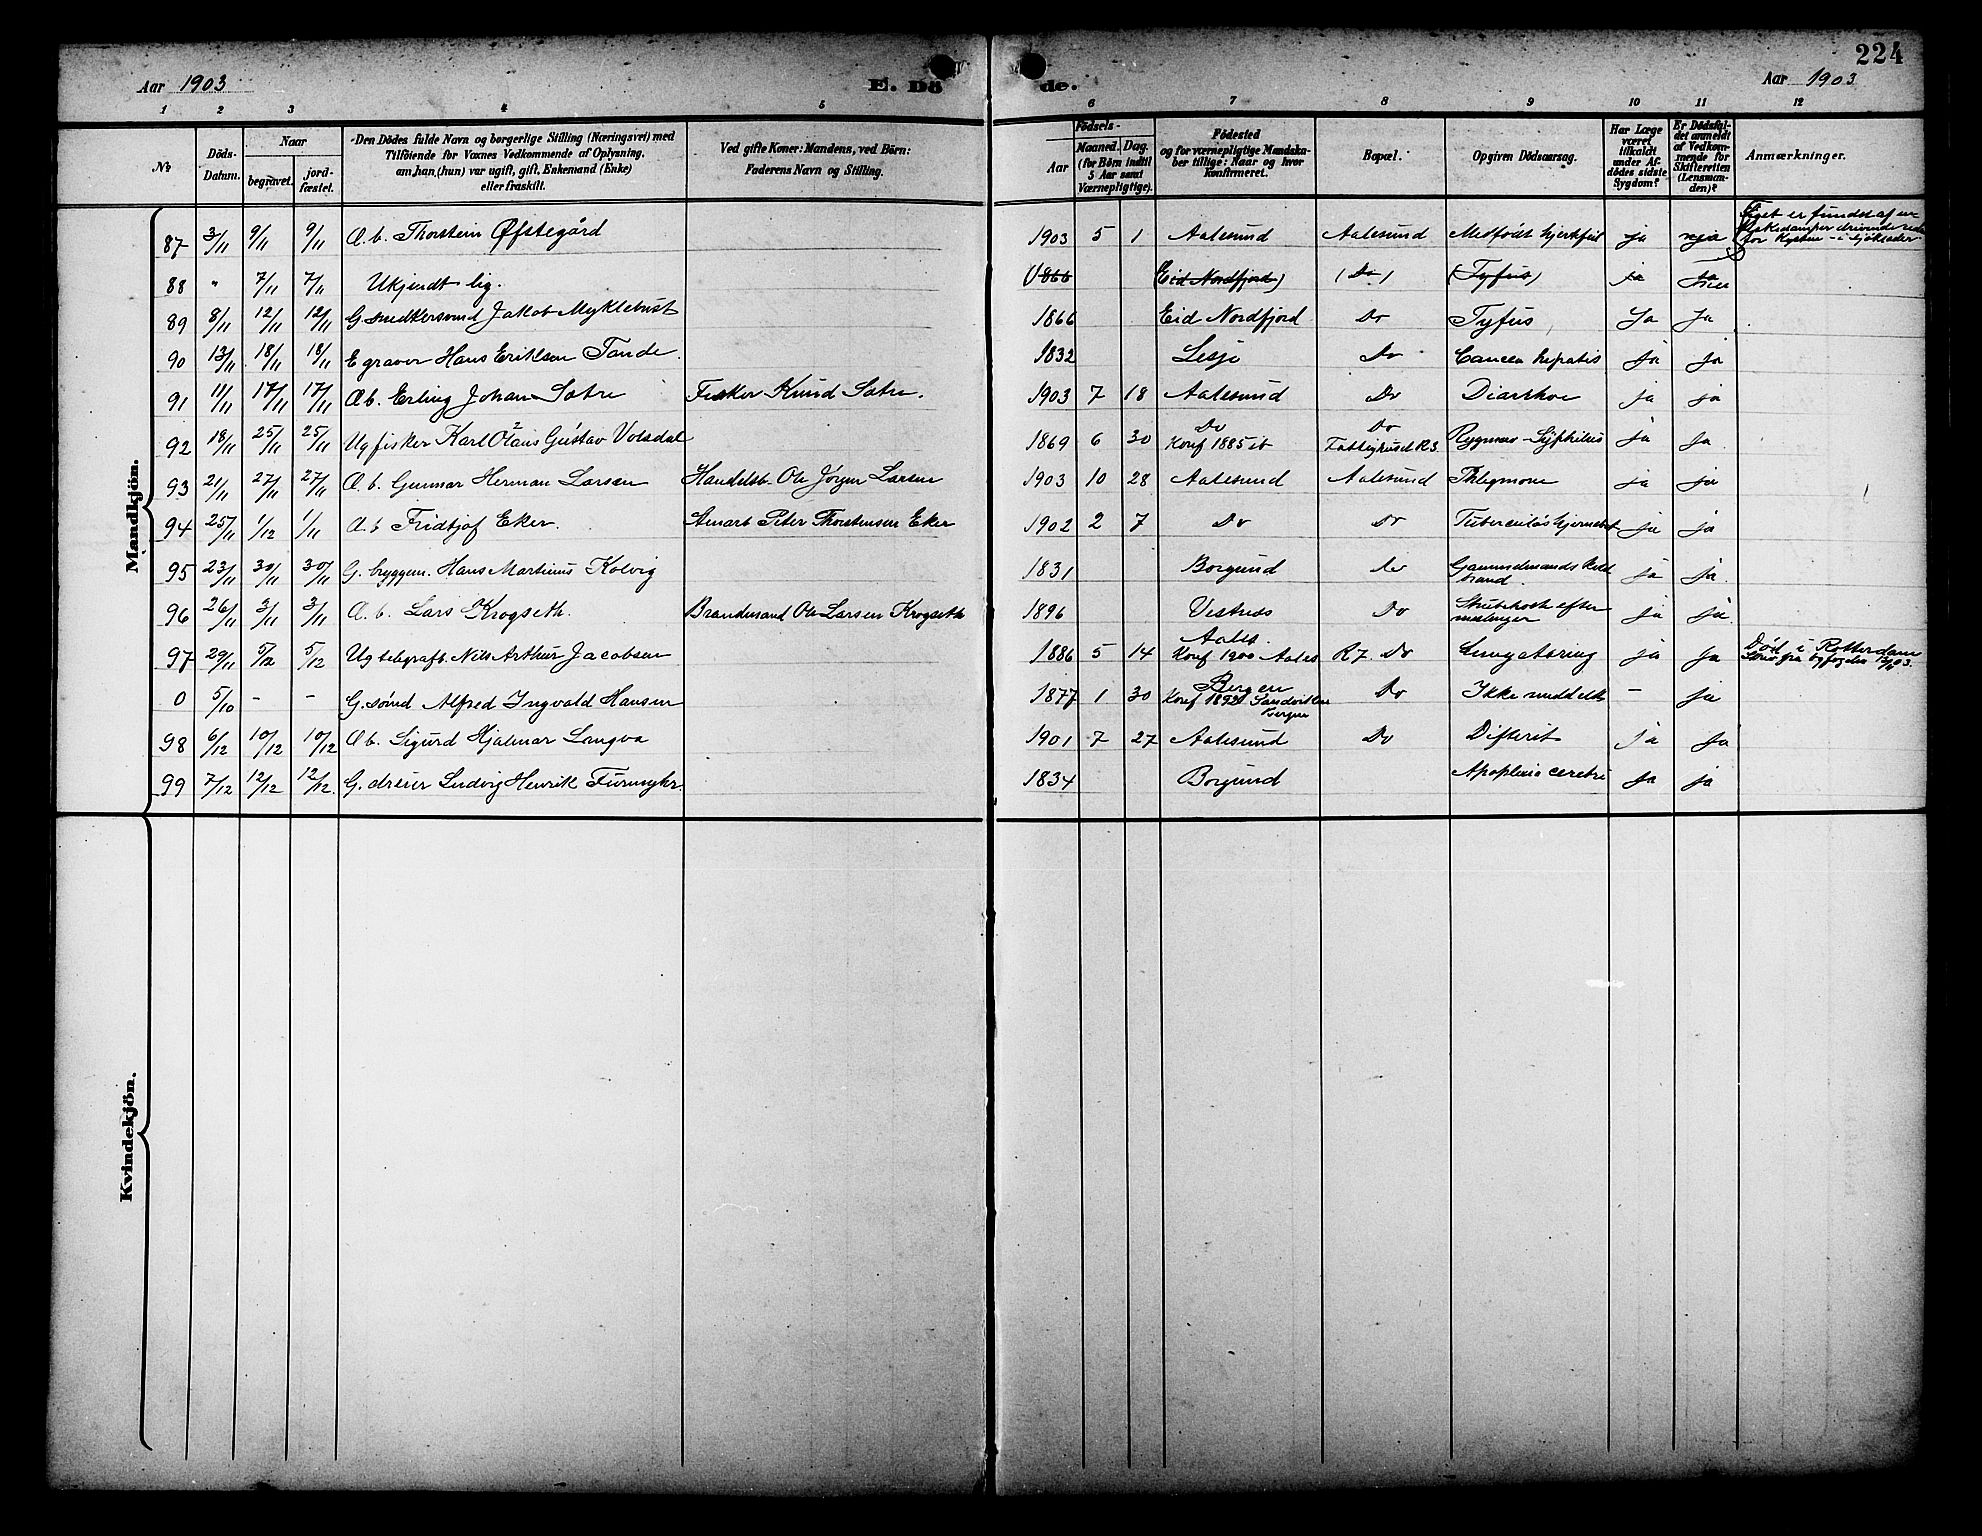 224
Aar 1903 E. Dö de. Aar 1903
1 2 3 4 5 6 7 8 9 10 11 12
№
Döds-Datum.
Naar
begravet.
jordfæstet.
Den Dödes fulde Navn og borgerlige Stilling (Næringsvei) med
Tilföiende for Voxnes Vedkommende af Oplysning,
om, han, (hun) var ugift, gift, Enkemand (Enke)
eller fraskilt.
Ved gifte Koner: Mandens, ved Börn:
Faderens Navn og Stilling.
Födsels-
Aar
Maaned. Dag.
(for Börn indtil
5 Aar samt
Værnepligtige).
Födested
og for værnepligtige Mandska-
ber tillige: Naar og hvor
konfirmeret.
Bopæl.
Opgiven Dödsaarsag.
Har Læge
været
tilkaldt
under Af-
dödes sidste
Sygdom?
Er Dödsfal-
det anmeldt
af Vedkom-
mende for
Skifteretten
(Lensman-
den)?
Anmærkninger.
Mandkjön.
87 3/11 9/11 9/11 Æ.b. Thorstein Øfstegård 1903 5 1 Aalesund Aalesund Medfødt hjertfeil ja
Liget er fundet af en
for Kysten
88 " 7/11 7/11 Ukjendt lig. 1866 (Eid Nordfjord) (Do) (Tyfus) ja
89 8/11 12/11 12/11 G. snedkersvend Jakob Myklebust 1866 Eid Nordfjord Do Tyfus Ja Ja
90 13/11 18/11 18/11 E graver Hans Eriksen Tande. 1832 Lesje Do Cancer hepatis Ja ja
91 11/11 17/11 17/11 Æb. Erling Johan Satre Fisker Knud Satre. 1903 7 18 Aalesund Do Diarrhoe ja ja
92 18/11 25/11 25/11 Ug fisker Karl Olaus Gustav Volsdal 1869 6 30 Do Konf 1885 Do Fattighuset R3. Rygmav-Syphilis ja Ja.
93 21/11 27/11 27/11 Æ.b. Gunnar Herman Larsen Handelsb. Ole Jørgen Larsen 1903 10 28 Aalesund Aalesund Phlegmone ja ja
94 25/11 1/12 1/11 Æ.b Fridtjof Eker. Peter Thorstensen Eker 1902 2 7 Do Do ja ja
95 23/11 30/11 30/11 G. bryggem. Hans Martinus Kolvig 1831 Borgund Do brand. ja ja.
96 26/11 3/11 3/11 Æ.b. Lars Krogseth. Brandmand Ole Larsen Krogseth 1896 Vestnes Do Strubehoste efter meslinger ja ja.
97 29/11 5/12 5/12 Ug telegrafb. Nils Arthur Jacobsen 1886 5 14 Aales. Konf 1900 Aales R7. Do Lungetæring ja Ja
Død i Rotterdam
0 5/10 - - G. sømd Alfred Ingvald Hansen 1877 1 30 Bergen Konf 1892 Sandviken Bergen Do Ikke meddelt - ja
98 6/12 10/12 10/12 Æb. Sigurd Hjalmar Longva 1901 7 27 Aalesund Do Difterit ja Ja
99 7/12 12/12 12/12. G. dreier Ludvig Henrik Furmyhr. 1834 Borgund Apoplexia cerebri Ja ja
Kvindekjön.